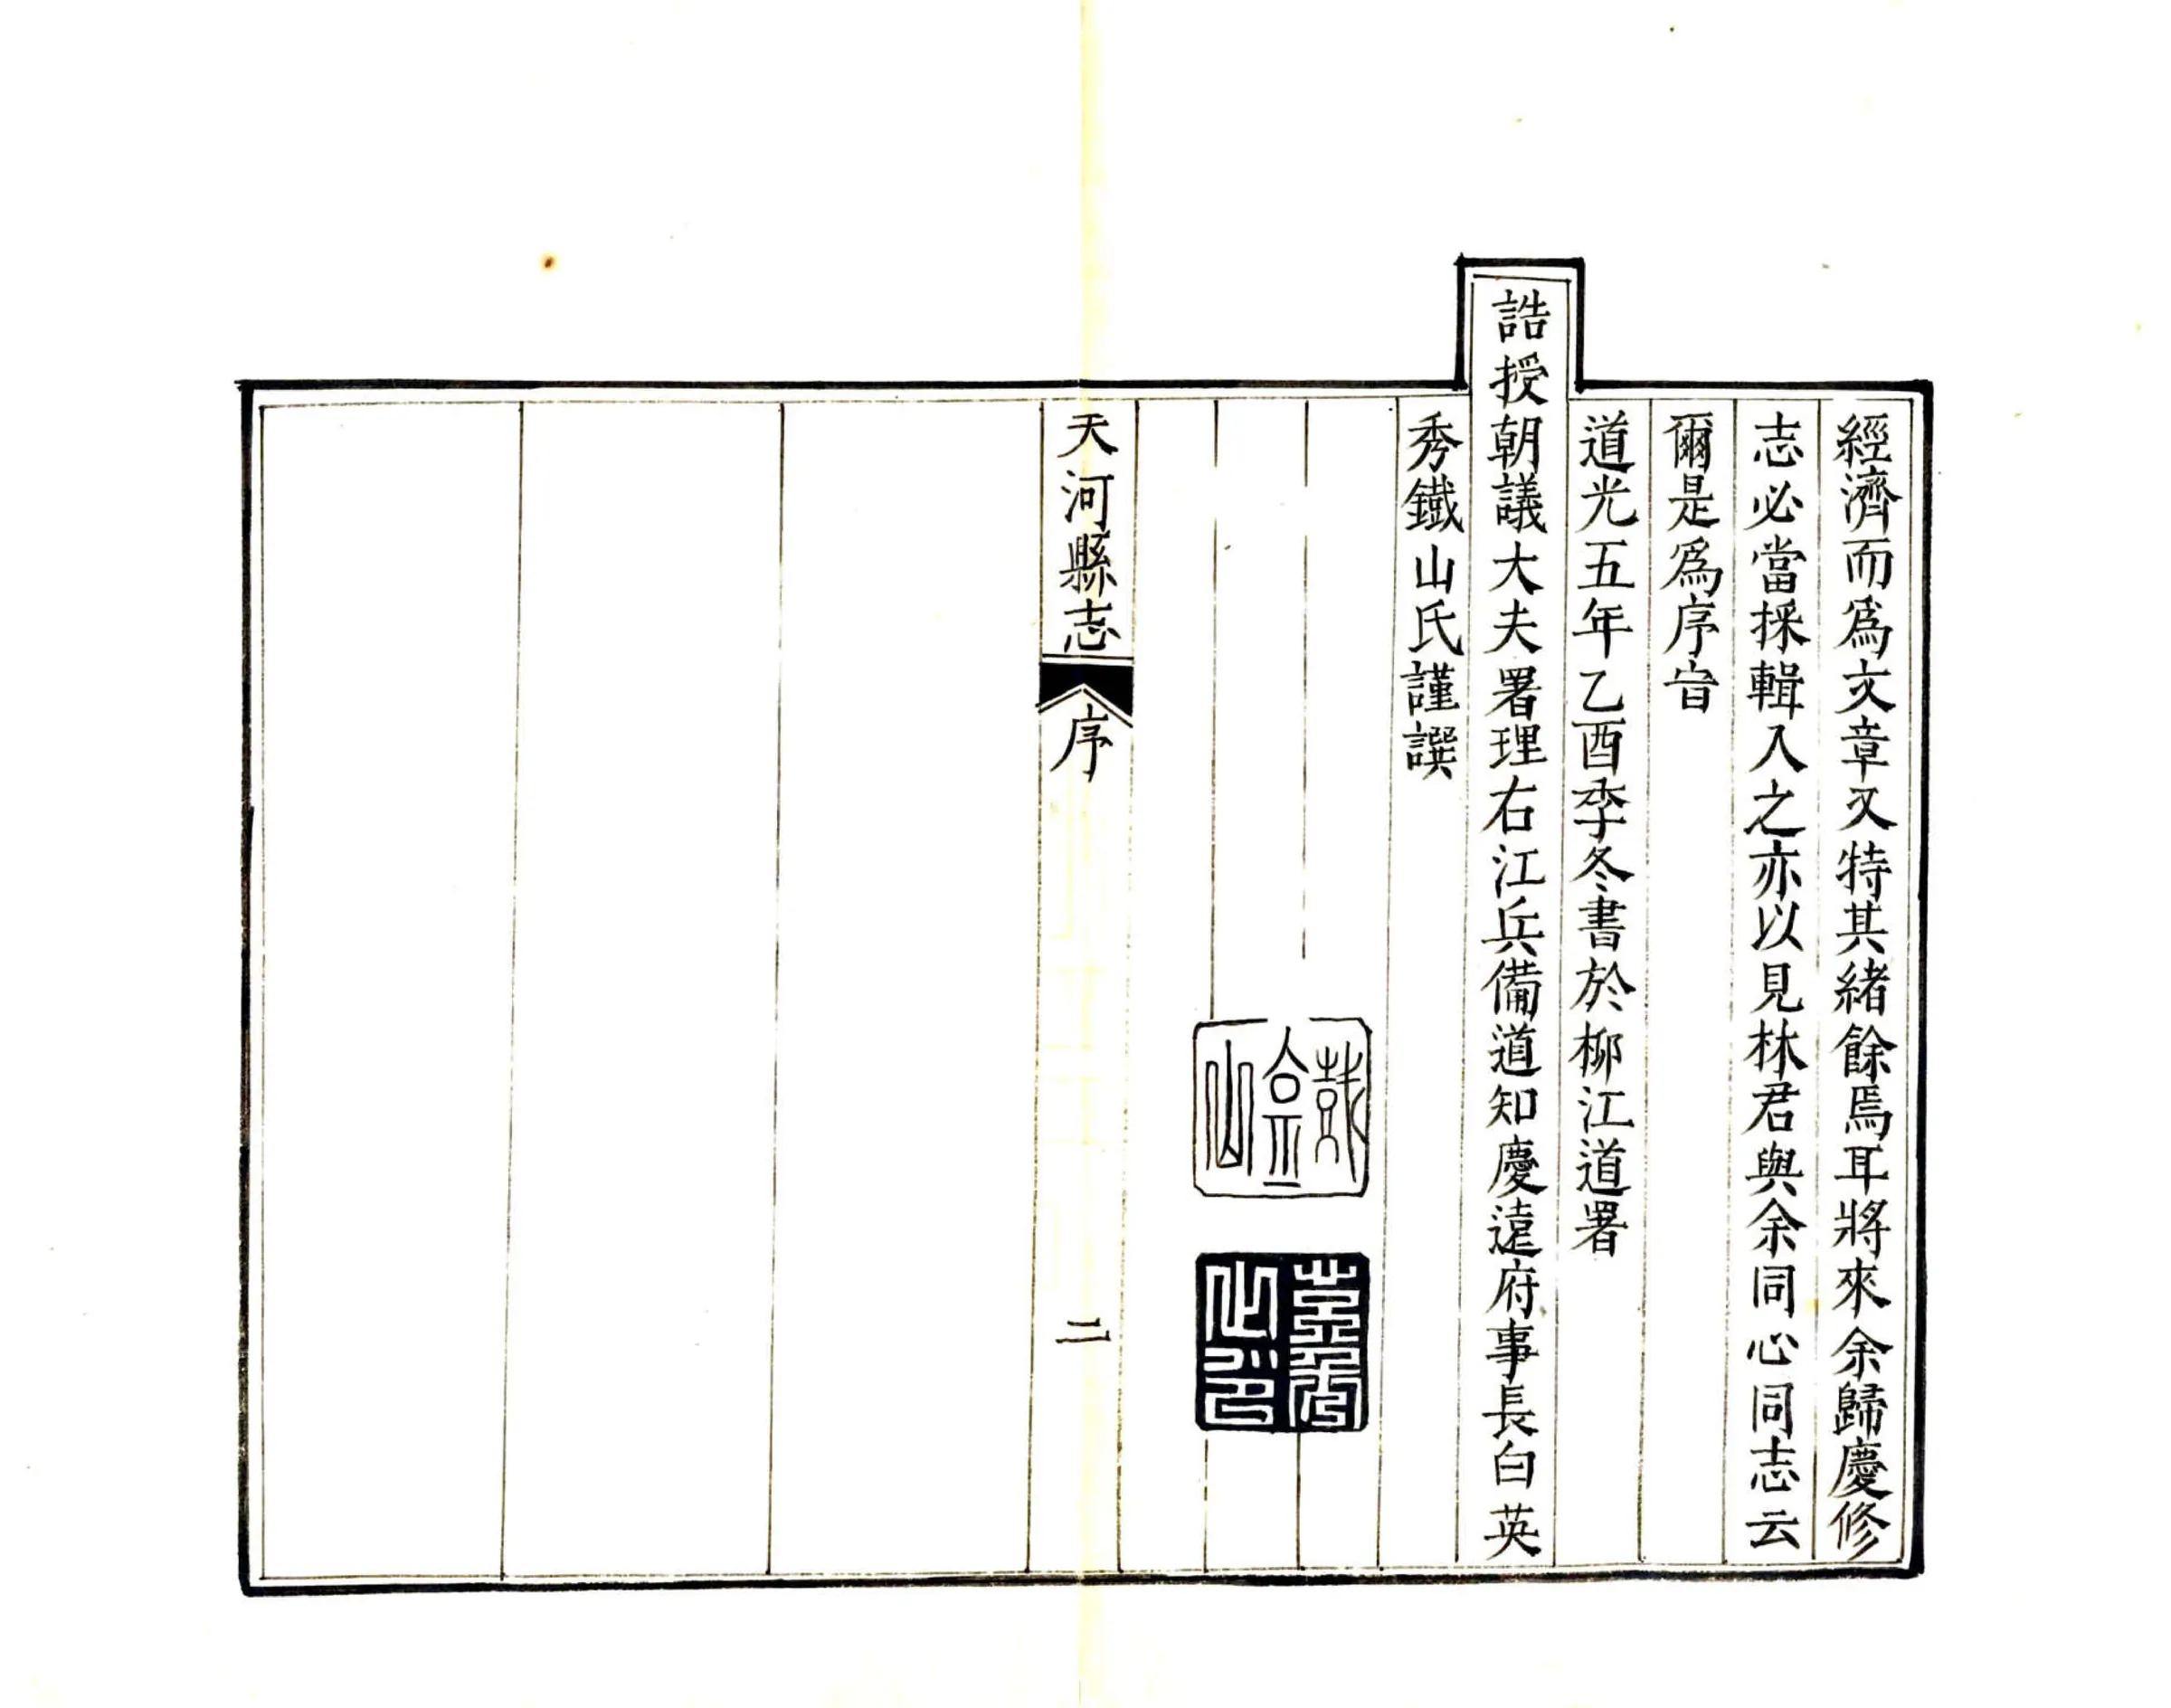 經濟而爲文章又特其緒餘焉耳將來余歸慶修
志必當採輯入之亦以見林君與余同心同志云
爾是爲序旹
道光五年乙酉季冬書於柳江道署
誥授朝議大夫署理右江兵備道知慶遠府事長白英
秀鐵山氏謹譔
英秀之印
天河縣志
序
二